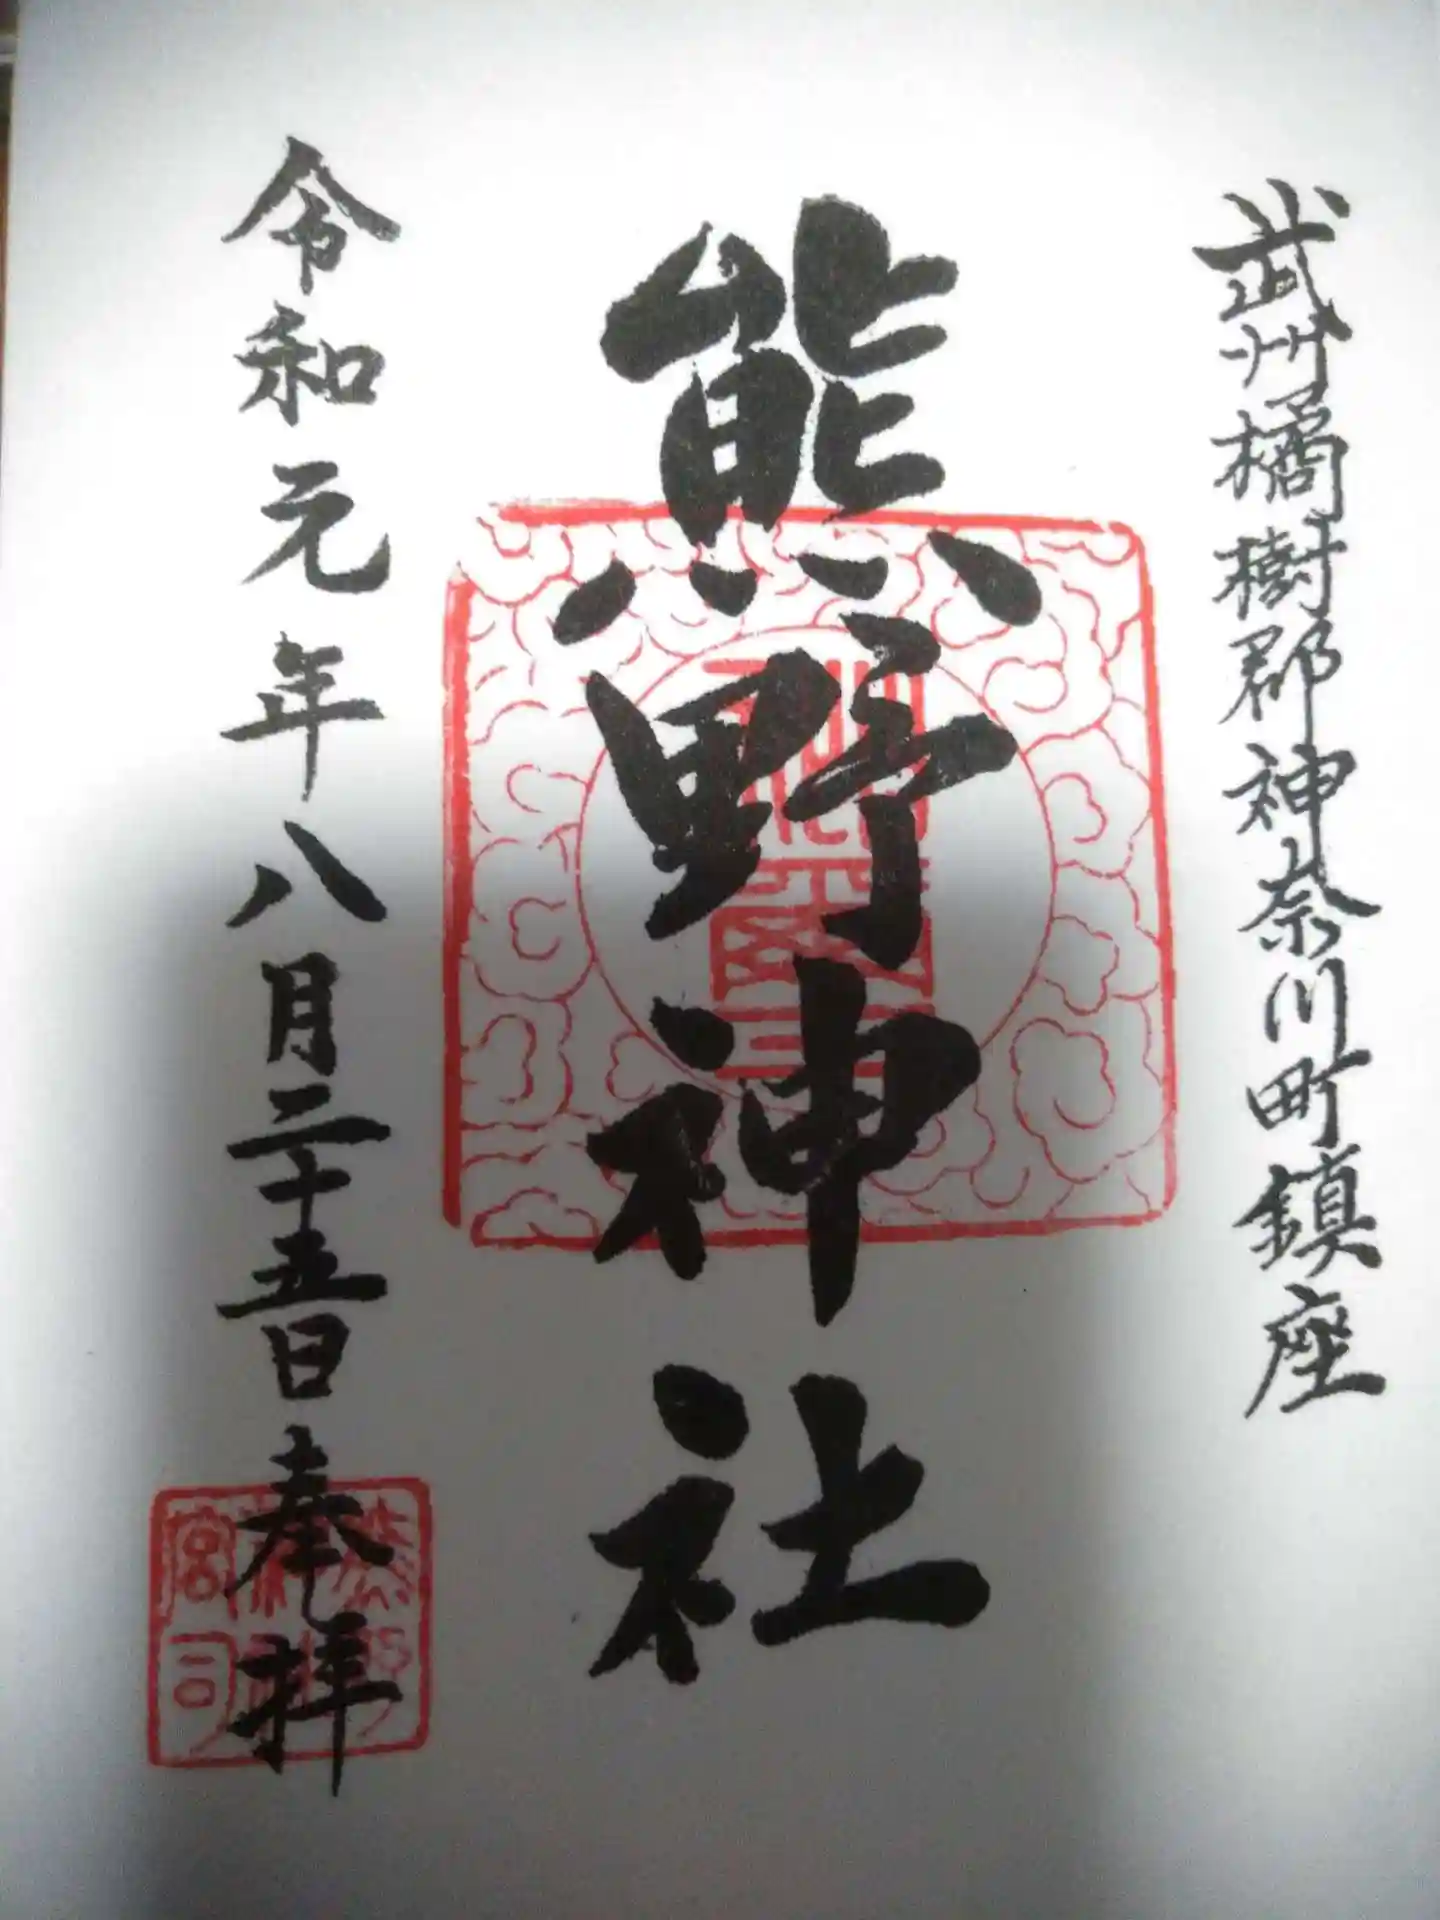 武州橘樹郡神奈川町鎮座
熊野神社
令和元年八月二十五日奉拝
熊野神社宮司